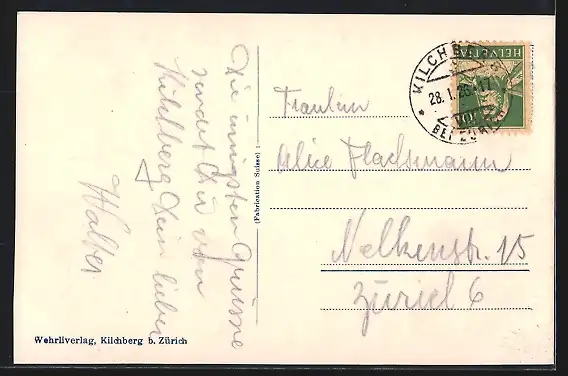 Die innigsten Grüsse
sendet Dir von
Kilchberg Dein lieber
Walter
(Fabrication Suisse)
Wehrliverlag, Kilchberg b. Zürich
HELVETIA
10
KILCHBERG
28.1.
BEI ZÜRICH
Fräulein
Alice Flachsmann
Nelkenstr. 15
Zürich 6